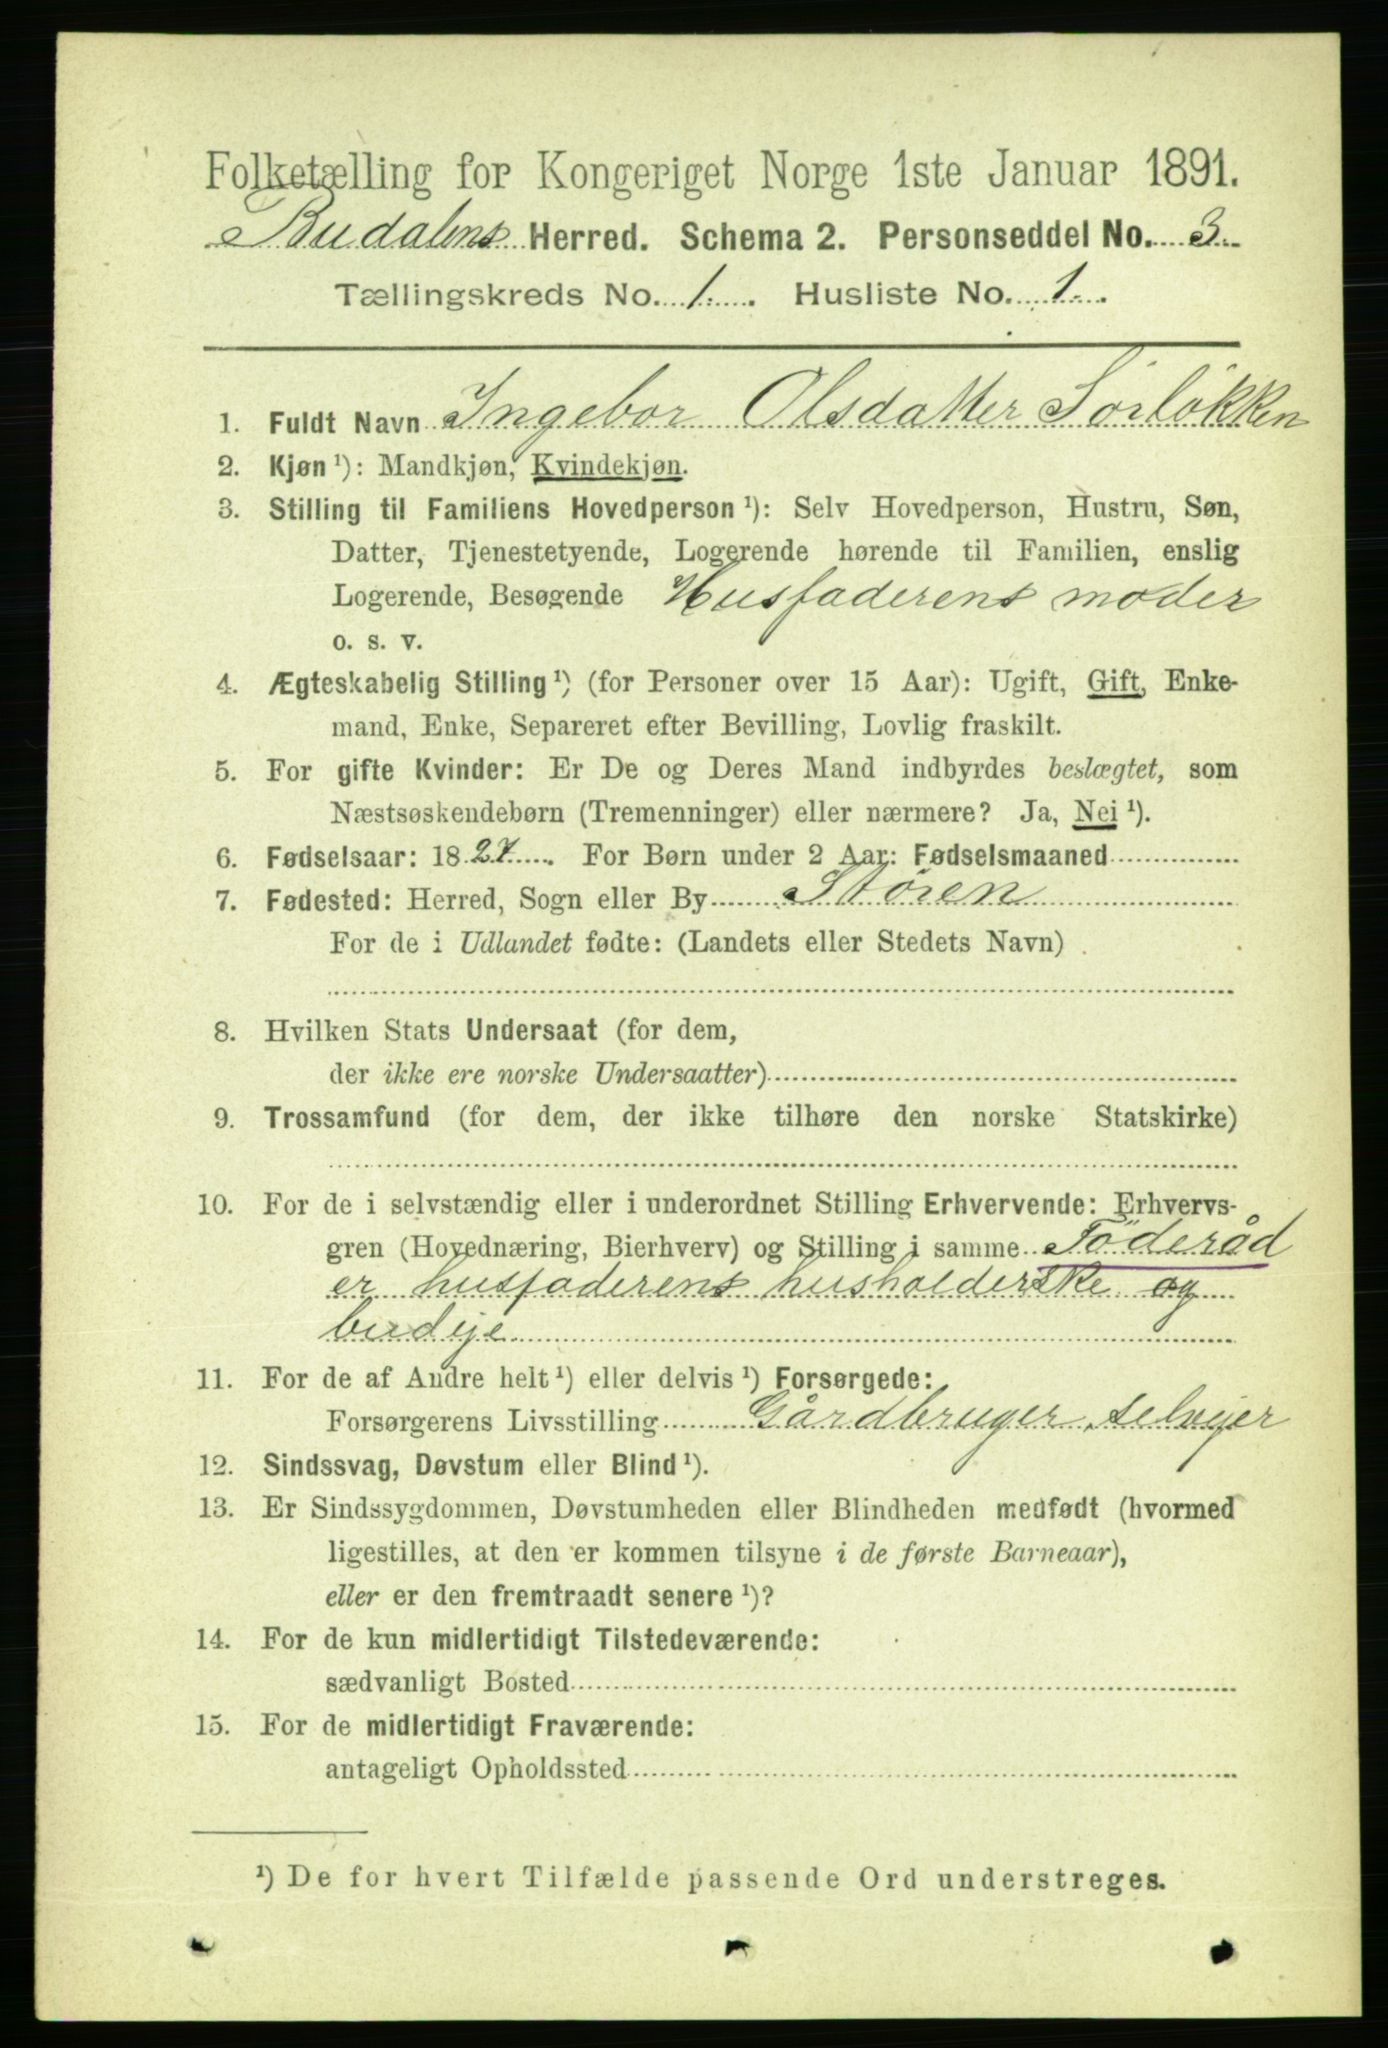 Folketælling for Kongeriget Norge 1ste Januar 1891.
Budalens Herred. Schema 2. Personseddel No. 3.
Tællingskreds No. 1. Husliste No. 1.
1. Fuldt Navn Ingebor Olsdatter Sörlökken
2. Kjøn ¹): Mandkjøn, Kvindekjøn.
3. Stilling til Familiens Hovedperson ¹): Selv Hovedperson, Hustru, Søn,
Datter, Tjenestetyende, Logerende hørende til Familien, enslig
Logerende, Besøgende Husfaderens moder
o. s. v.
4. Ægteskabelig Stilling ¹) (for Personer over 15 Aar): Ugift, Gift, Enke-
mand, Enke, Separeret efter Bevilling, Lovlig fraskilt.
5. For gifte Kvinder: Er De og Deres Mand indbyrdes beslægtet, som
Næstsøskendebørn (Tremenninger) eller nærmere? Ja, Nei ¹).
6. Fødselsaar: 1827. For Børn under 2 Aar: Fødselsmaaned
7. Fødested: Herred, Sogn eller By Stören
For de i Udlandet fødte: (Landets eller Stedets Navn)
8. Hvilken Stats Undersaat (for dem,
der ikke ere norske Undersaatter)
9. Trossamfund (for dem, der ikke tilhøre den norske Statskirke)
10. For de i selvstændig eller i underordnet Stilling Erhvervende: Erhvervs-
gren (Hovednæring, Bierhverv) og Stilling i samme Föderåd
er husfaderens husholderske og
budeje
11. For de af Andre helt ¹) eller delvis ¹) Forsørgede:
Forsørgerens Livsstilling Gårdbruger, selvejer
12. Sindssvag, Døvstum eller Blind ¹).
13. Er Sindssygdommen, Døvstumheden eller Blindheden medfødt (hvormed
ligestilles, at den er kommen tilsyne i de første Barneaar),
eller er den fremtraadt senere ¹)?
14. For de kun midlertidigt Tilstedeværende:
sædvanligt Bosted
15. For de midlertidigt Fraværende:
antageligt Opholdssted
¹) De for hvert Tilfælde passende Ord understreges.